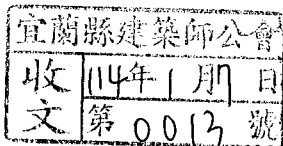 宜蘭縣建築師公會
收文
114年1月7日
第0013號